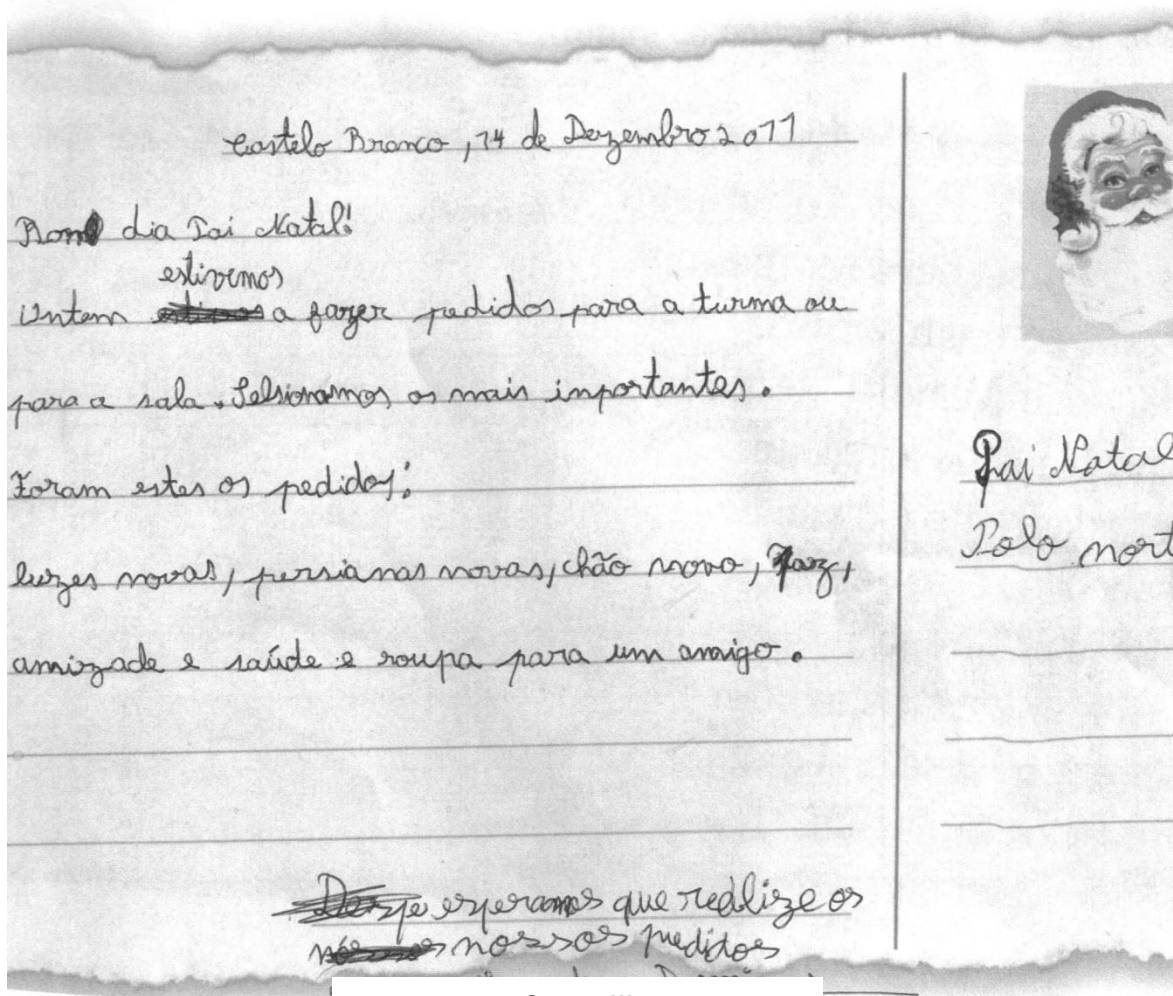 Castelo Branco, 14 de Dezembro 2011
Bom dia Pai Natal!
estivemos
Ontem a fazer pedidos para a turma ou
para a sala. Selsionámos os mais inportantes.
Foram estes os pedidos:
luzes novas, persianas novas, chão novo, Paz,
amizade e saúde e roupa para um amigo.
esperamos que realize os
nossos pedidos
Pai Natal
Polo nort